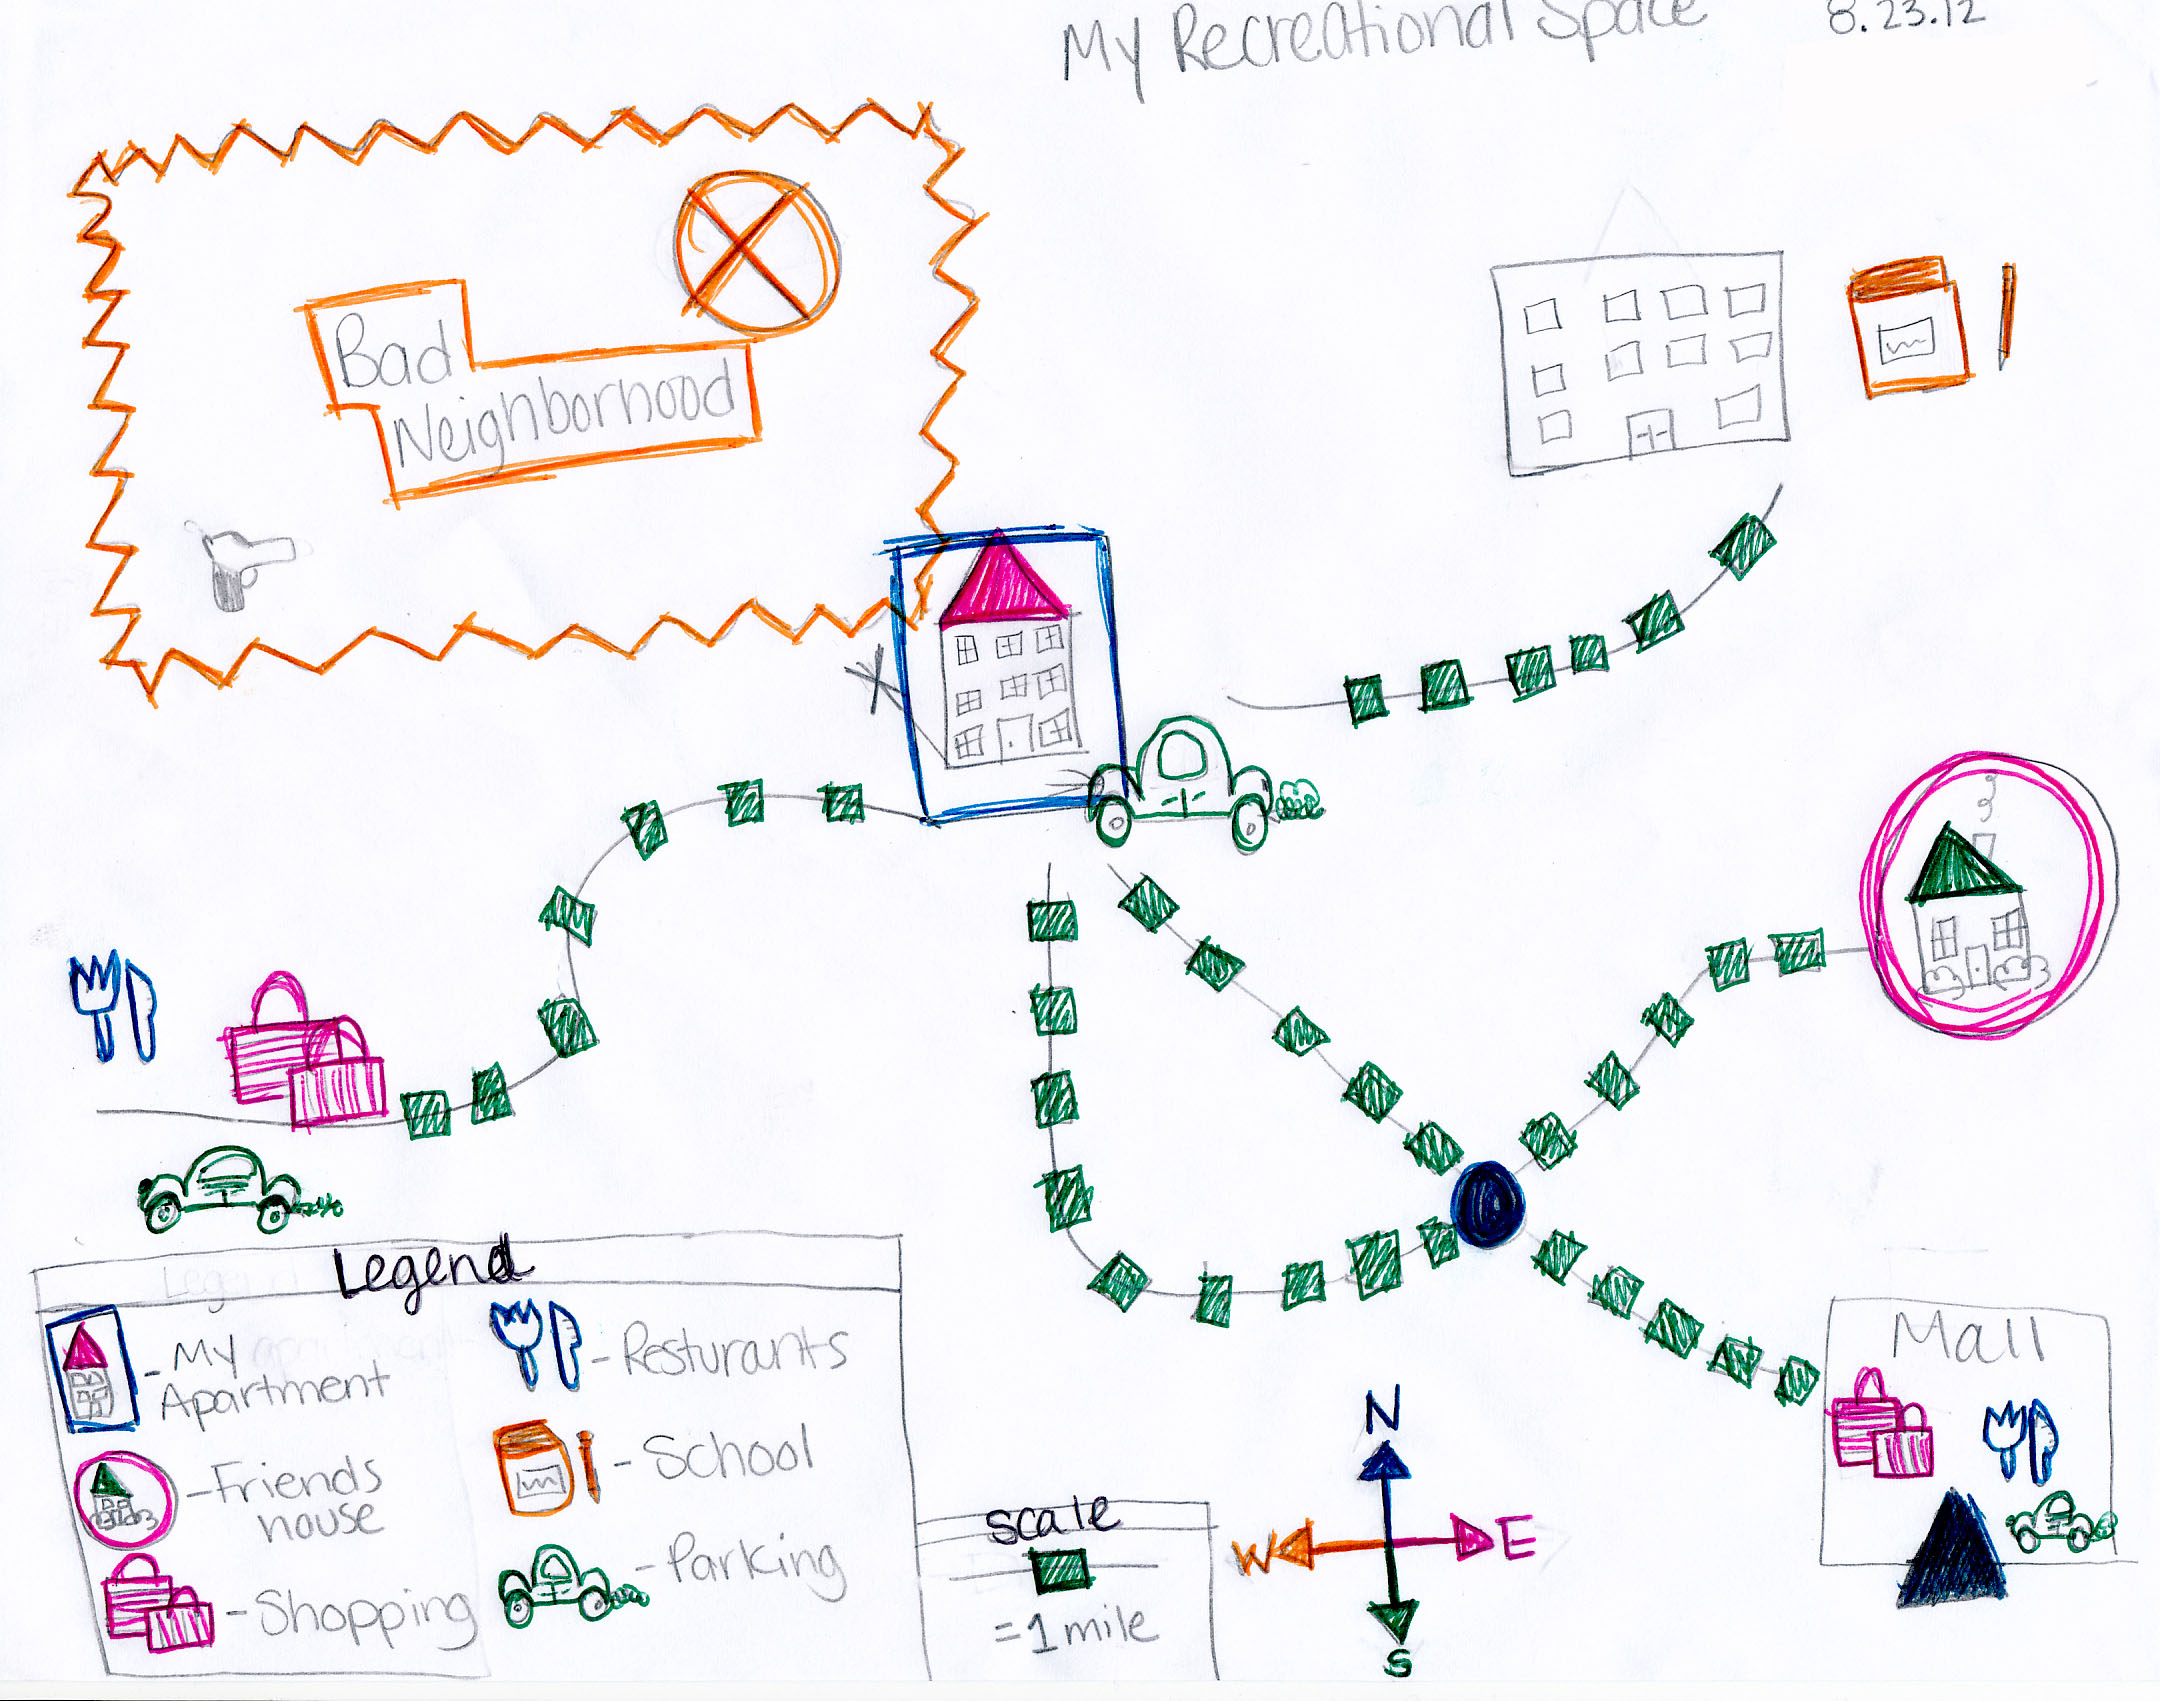 My Recreational Space 8.23.12
Bad
Neighborhood
Mall
Legend
- My
Apartment
- Friends
house
- Shopping
- Resturants
- School
- Parking
scale
= 1 mile
N
W E
S